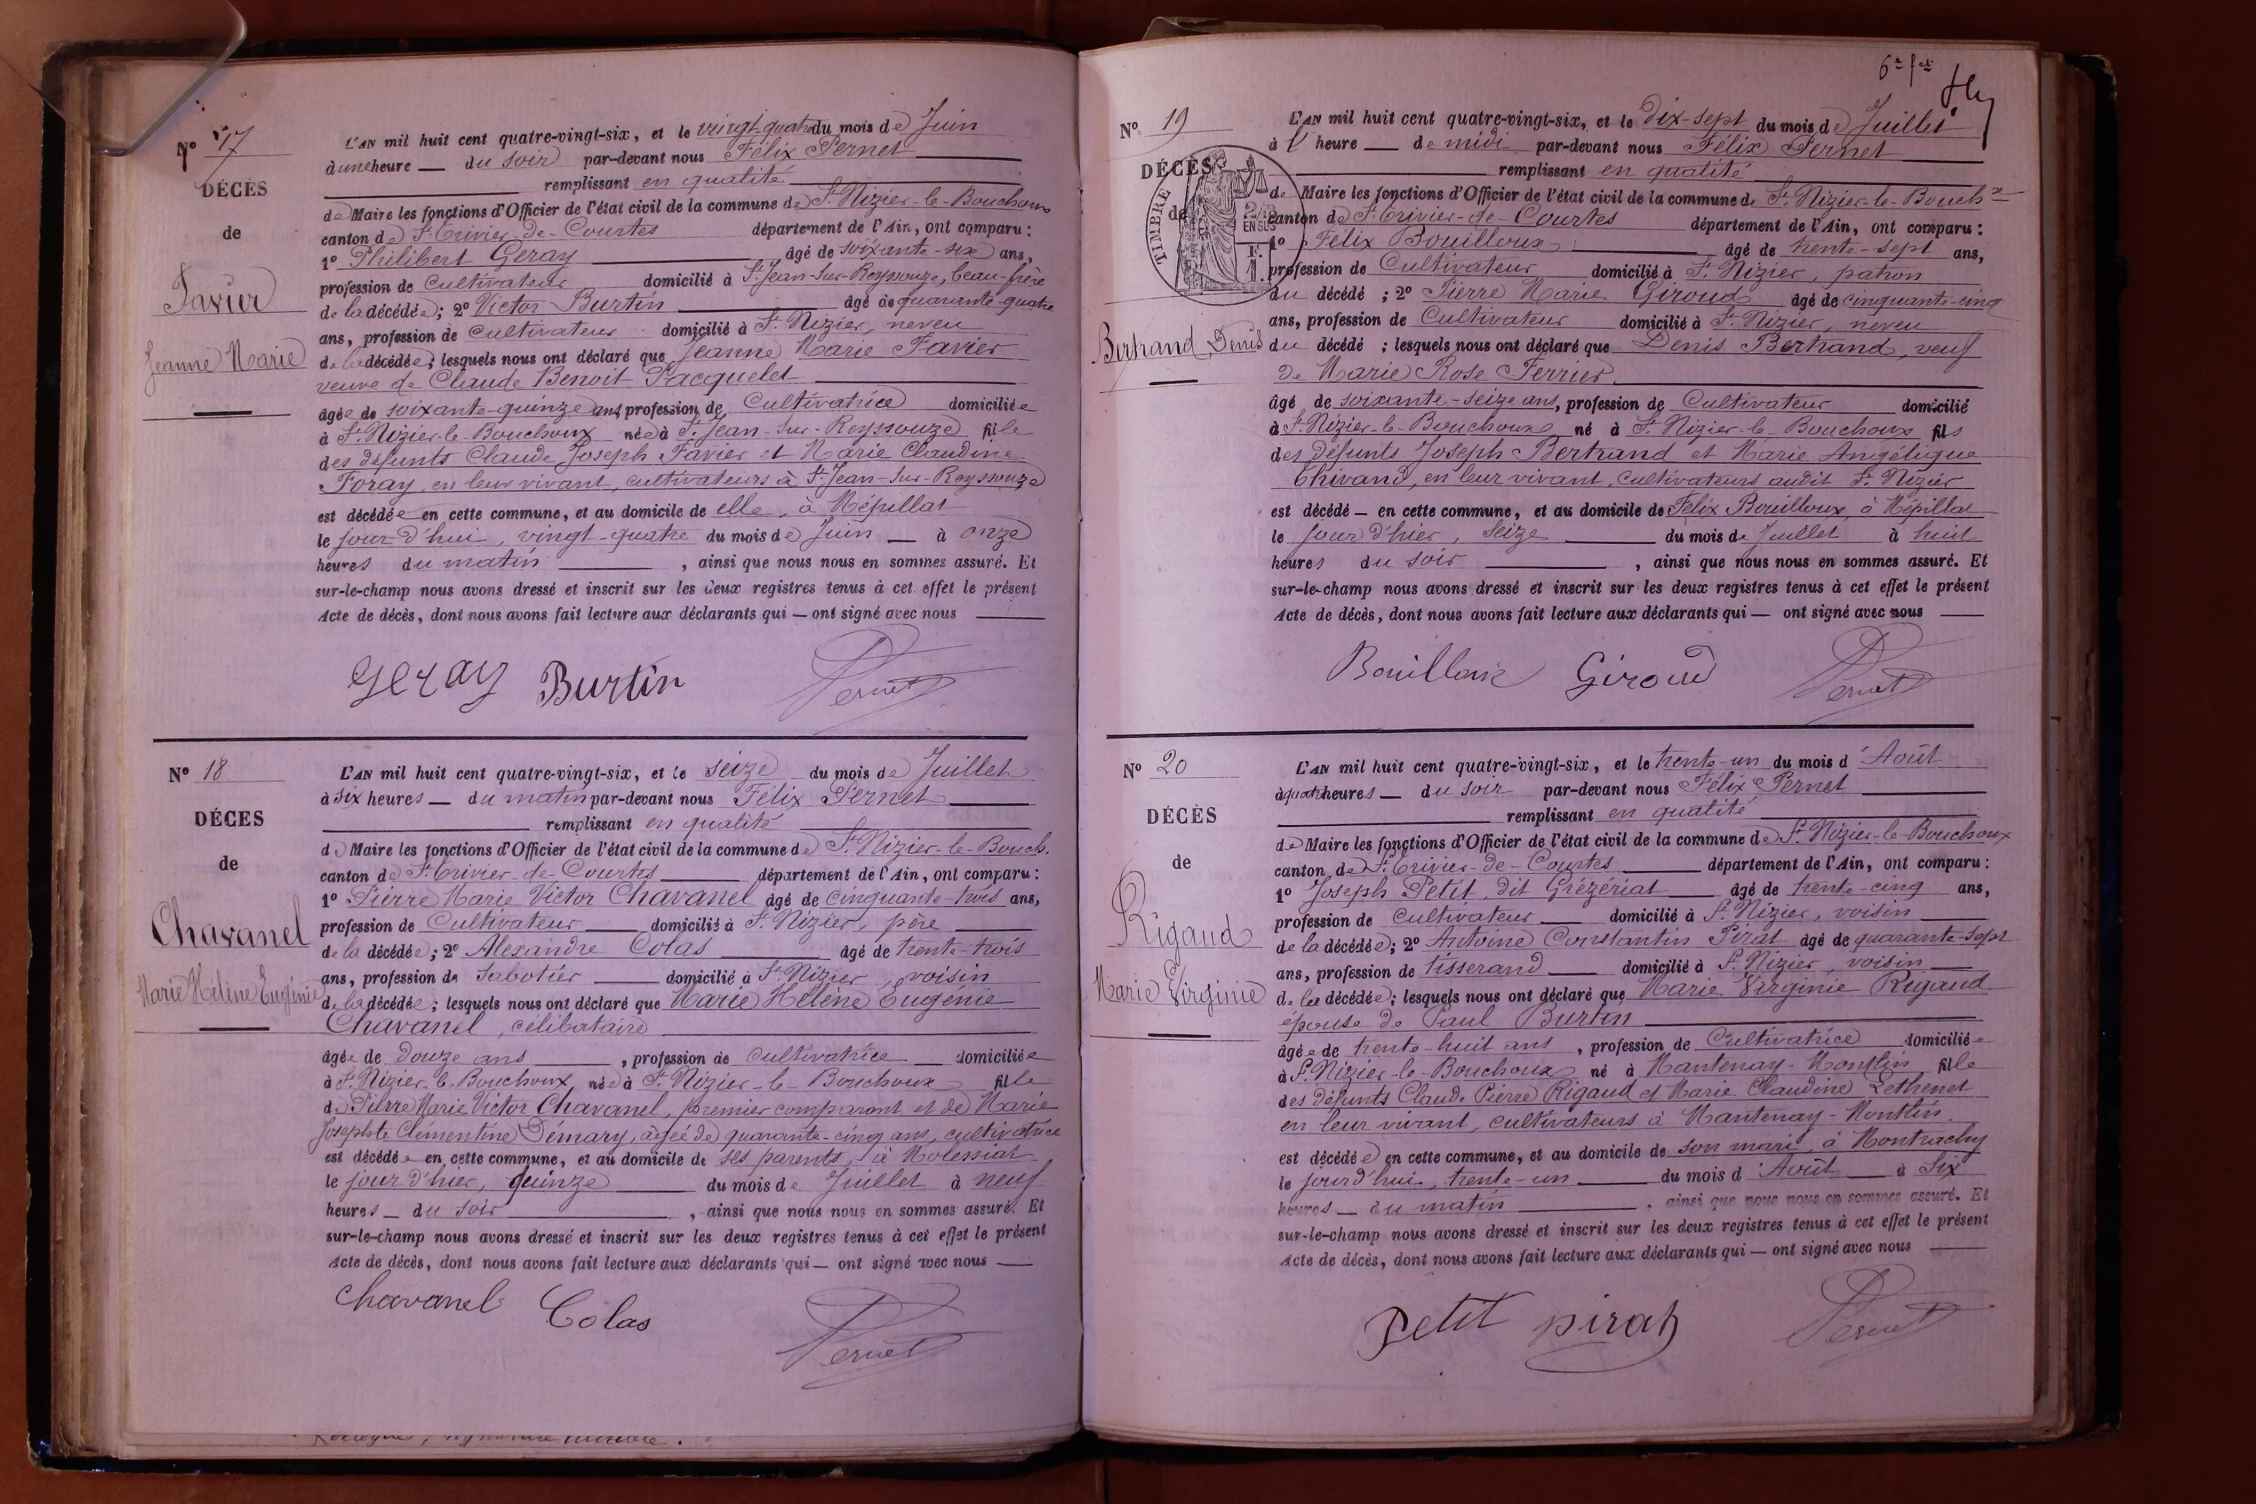 Nº 17
DÉCÈS
de
Favier
Jeanne Marie
L'AN mil huit cent quatre-vingt-six, et le vingt-quatre du mois de Juin
à une heure — du soir par-devant nous Félix Pernet
remplissant en qualité
de Maire les fonctions d'Officier de l'état civil de la commune de St Nizier-le-Bouchoux
canton de St Trivier-de-Courtes département de l'Ain, ont comparu :
1º Philibert Geray âgé de soixante-six ans,
profession de Cultivateur domicilié à St Jean-sur-Reyssouze, beau-frère
de la décédée ; 2º Victor Burtin âgé de quarante-quatre
ans, profession de Cultivateur domicilié à St Nizier, neveu
de la décédée ; lesquels nous ont déclaré que Jeanne Marie Favier
veuve de Claude Benoit Pacquelet
âgée de soixante-quinze ans profession de Cultivatrice domiciliée
à St Nizier-le-Bouchoux née à St Jean-sur-Reyssouze fille
des défunts Claude Joseph Favier et Marie Claudine
Foray, en leur vivant, cultivateurs à St Jean-sur-Reyssouze
est décédée en cette commune, et au domicile de elle, à Mépillat
le jour d'hui, vingt-quatre du mois de Juin — à onze
heures du matin , ainsi que nous nous en sommes assuré. Et
sur-le-champ nous avons dressé et inscrit sur les deux registres tenus à cet effet le présent
Acte de décès, dont nous avons fait lecture aux déclarants qui — ont signé avec nous
Geray Burtin Pernet
Nº 18
DÉCES
de
Chavanel
Marie Hélène Eugénie
L'AN mil huit cent quatre-vingt-six, et le seize du mois de Juillet
à six heures — du matin par-devant nous Félix Pernet
remplissant en qualité
de Maire les fonctions d'Officier de l'état civil de la commune de St Nizier-le-Bouch.
canton de St Trivier-de-Courtes département de l'Ain, ont comparu :
1º Pierre Marie Victor Chavanel âgé de cinquante-trois ans,
profession de Cultivateur domicilié à St Nizier, père
de la décédée ; 2º Alexandre Colas âgé de trente-trois
ans, profession de Sabotier domicilié à St Nizier, voisin
de la décédée ; lesquels nous ont déclaré que Marie Hélène Eugénie
Chavanel, célibataire
âgée de douze ans , profession de Cultivatrice domiciliée
à St Nizier-le-Bouchoux née à St Nizier-le-Bouchoux fille
de Pierre Marie Victor Chavanel, premier comparant et de Marie
Josephte Clémentine Démary, âgée de quarante-cinq ans, cultivatrice
est décédée en cette commune, et au domicile de ses parents, à Molessiat
le jour d'hier, quinze du mois de Juillet à neuf
heures — du soir , ainsi que nous nous en sommes assuré. Et
sur-le-champ nous avons dressé et inscrit sur les deux registres tenus à cet effet le présent
Acte de décès, dont nous avons fait lecture aux déclarants qui — ont signé avec nous
Chavanel Colas Pernet
Nº 19
DÉCÈS
de
Bertrand, Denis
TIMBRE
EN SUS
L'AN mil huit cent quatre-vingt-six, et le dix-sept du mois de Juillet
à l' heure — de midi par-devant nous Félix Pernet
remplissant en qualité
de Maire les fonctions d'Officier de l'état civil de la commune de St Nizier-le-Bouchx
canton de St Trivier-de-Courtes département de l'Ain, ont comparu :
1º Félix Bouilloux âgé de trente-sept ans,
profession de Cultivateur domicilié à St Nizier, patron
du décédé ; 2º Pierre Marie Giroud âgé de cinquante-cinq
ans, profession de Cultivateur domicilié à St Nizier, neveu
du décédé ; lesquels nous ont déclaré que Denis Bertrand, veuf
de Marie Rose Ferrier
âgé de soixante-seize ans, profession de Cultivateur domicilié
à St Nizier-le-Bouchoux né à St Nizier-le-Bouchoux fils
des défunts Joseph Bertrand et Marie Angélique
Chivand, en leur vivant, cultivateurs audit St Nizier
est décédé — en cette commune, et au domicile de Félix Bouilloux, à Mépillat
le jour d'hier, seize du mois de Juillet à huit
heures du soir , ainsi que nous nous en sommes assuré. Et
sur-le-champ nous avons dressé et inscrit sur les deux registres tenus à cet effet le présent
Acte de décès, dont nous avons fait lecture aux déclarants qui — ont signé avec nous
Bouilloux Giroud Pernet
Nº 20
DÉCÈS
de
Rigaud
Marie Virginie
L'AN mil huit cent quatre-vingt-six, et le trente-un du mois d'Août
à quatre heures — du soir par-devant nous Félix Pernet
remplissant en qualité
de Maire les fonctions d'Officier de l'état civil de la commune de St Nizier-le-Bouchoux
canton de St Trivier-de-Courtes département de l'Ain, ont comparu :
1º Joseph Petit, dit Grézériat âgé de trente-cinq ans,
profession de Cultivateur domicilié à St Nizier, voisin
de la décédée ; 2º Antoine Constantin Pirat âgé de quarante-sept
ans, profession de tisserand domicilié à St Nizier, voisin
de la décédée ; lesquels nous ont déclaré que Marie Virginie Rigaud
épouse de Paul Burtin
âgée de trente-huit ans , profession de Cultivatrice domiciliée
à St Nizier-le-Bouchoux né à Mantenay-Montlin fille
des défunts Claude Pierre Rigaud et Marie Claudine Lethenet
en leur vivant, cultivateurs à Mantenay-Montlin
est décédée en cette commune, et au domicile de son mari, à Montrachy
le jour d'hui, trente-un du mois d'Août à six
heures — du matin , ainsi que nous nous en sommes assuré. Et
sur-le-champ nous avons dressé et inscrit sur les deux registres tenus à cet effet le présent
Acte de décès, dont nous avons fait lecture aux déclarants qui — ont signé avec nous
Petit Pirat Pernet